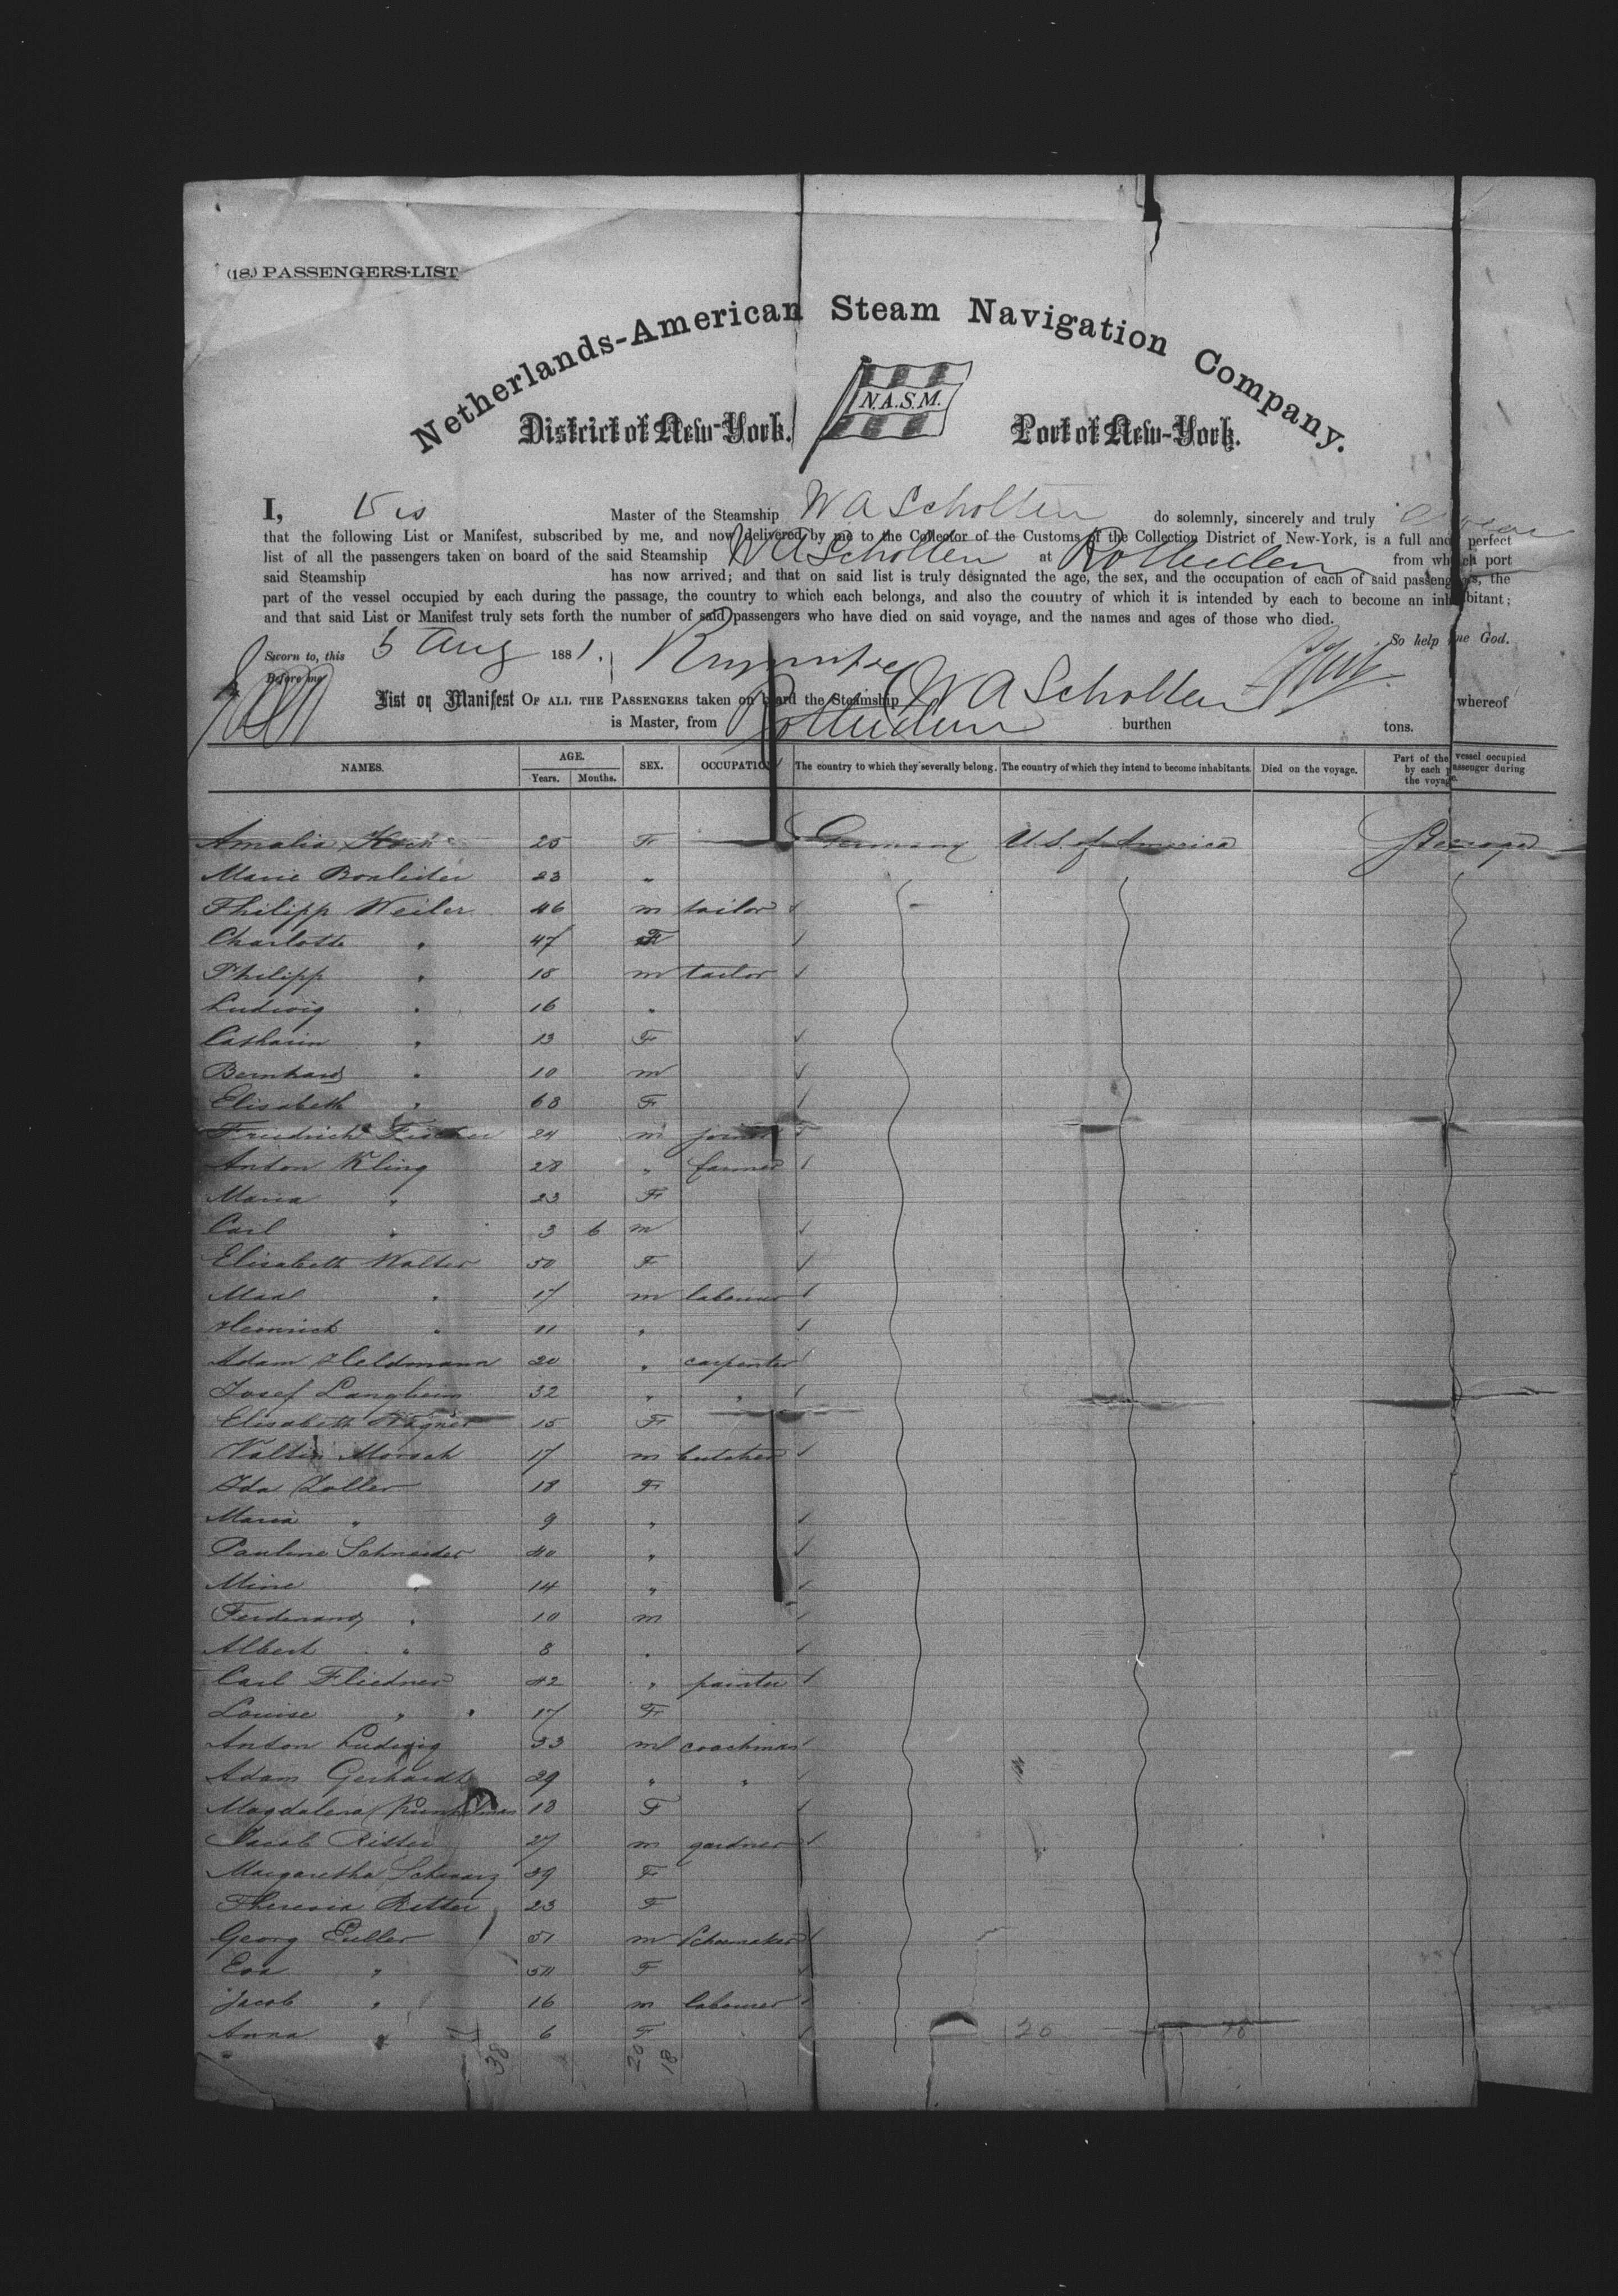 (18.) PASSENGERS-LIST
Netherlands-American Steam Navigation Company.
N.A.S.M.
District of New-York. Port of New-York.
I, Vis Master of the Steamship W A Scholten do solemnly, sincerely and truly
that the following List or Manifest, subscribed by me, and now delivered by me to the Collector of the Customs of the Collection District of New-York, is a full and perfect
list of all the passengers taken on board of the said Steamship W A Scholten at Rotterdam from which port
said Steamship has now arrived; and that on said list is truly designated the age, the sex, and the occupation of each of said passengers, the
part of the vessel occupied by each during the passage, the country to which each belongs, and also the country of which it is intended by each to become an inhabitant;
and that said List or Manifest truly sets forth the number of said passengers who have died on said voyage, and the names and ages of those who died.
So help me God.
Sworn to, this 5 Aug 1881.
Before me
List or Manifest OF ALL THE PASSENGERS taken on board the Steamship W A Scholten whereof
is Master, from Rotterdam burthen tons.
NAMES. AGE. Years. Months. SEX. OCCUPATION The country to which they severally belong. The country of which they intend to become inhabitants. Died on the voyage. Part of the vessel occupied by each passenger during the voyage.
Amalia Koch 25 F Germany U.S. of America Steerage
Marie 23 "
Philipp Weiler 46 m tailor
Charlotte " 47 F
Philipp " 18 m tailor
Ludwig " 16 "
Catharin " 13 F
Bernhard " 10 m
Elisabeth " 68 F
Friedrich Fischer 24 m joiner
Anton Kling 28 " farmer
Maria " 23 F
Carl " 3 6 m
Elisabeth Walter 50 F
" 17 m labourer
Heinrich " 11 "
Adam Heldmann 20 " carpenter
Josef Langheim 32 " "
Elisabeth Wagner 15 F
Valtin Morsch 17 m butcher
Ida Zoller 18 F
Maria " 9 "
Pauline Schneider 40 "
Mine " 14 "
Ferdinand " 10 m
Albert " 8 "
Carl Fliedner 42 " painter
Louise " 17 F
Anton Ludwig 33 m coachman
Adam Gerhardt 29 " "
Magdalena 18 F
Jacob Ritter 27 m gardner
Margaretha Schwarz 29 F
Theresia Ritter 23 F
Georg Puller 51 m Schumaker
Eva " F
Jacob " 16 m labourer
Anna " 6 F
38 20 18